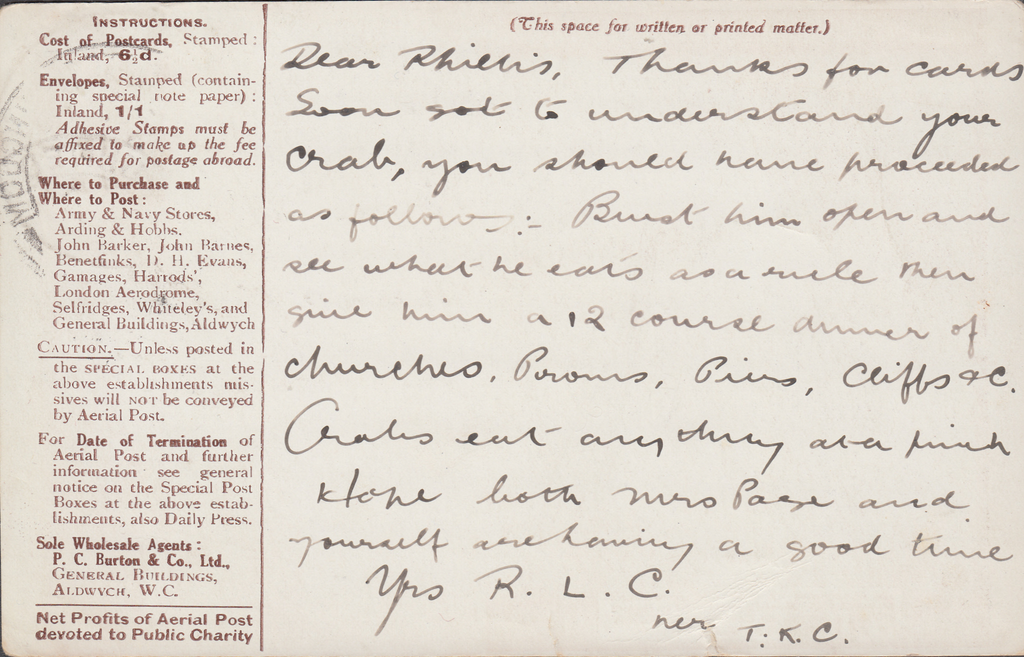 INSTRUCTIONS.
Cost of Postcards, Stamped:
Inland, 6½d.
Envelopes, Stamped (contain-
ing special note paper):
Inland, 1/1
Adhesive Stamps must be
affixed to make up the fee
required for postage abroad.
Where to Purchase and
Where to Post:
Army & Navy Stores,
Arding & Hobbs.
John Barker, John Barnes,
Benetfinks, D. H. Evans,
Gamages, Harrods',
London Aerodrome,
Selfridges, Whiteley's, and
General Buildings, Aldwych
CAUTION.—Unless posted in
the SPECIAL BOXES at the
above establishments mis-
sives will NOT be conveyed
by Aerial Post.
For Date of Termination of
Aerial Post and further
information see general
notice on the Special Post
Boxes at the above estab-
lishments, also Daily Press.
Sole Wholesale Agents:
P. C. Burton & Co., Ltd.,
GENERAL BUILDINGS,
ALDWYCH, W.C.
Net Profits of Aerial Post
devoted to Public Charity
(This space for written or printed matter.)
Dear Thanks for cards
Soon got to understand your
crab, you should have proceeded
as follows:- Burst him open and
see what he eats as a rule then
give him a 12 course dinner of
churches, Proms, Piers, Cliffs &c.
Crabs eat anything at a pinch
Hope both Mrs Page and
yourself are having a good time
Yrs R. L. C.
per T. K. C.